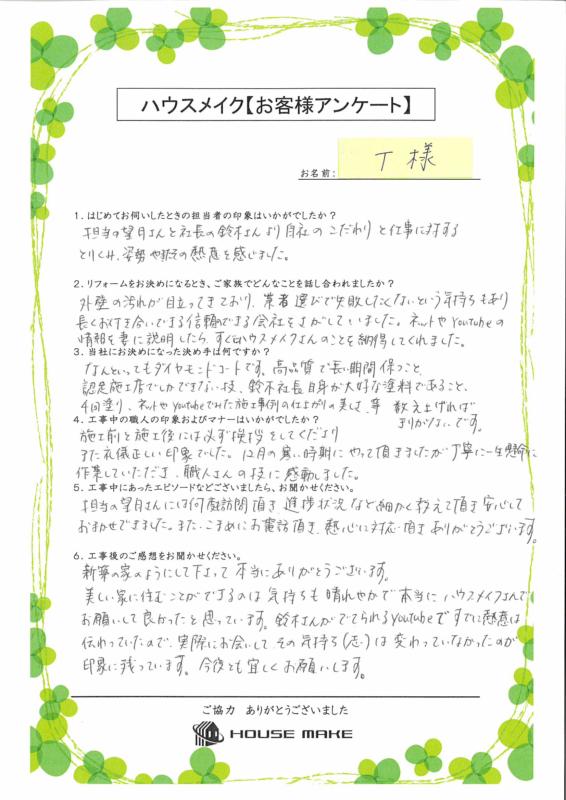 ハウスメイク【お客様アンケート】
お名前： T 様
1．はじめてお伺いしたときの担当者の印象はいかがでしたか？
担当の望月さんと社長の鈴木さんより自社のこだわりと仕事に対する
とりくみ、姿勢や話の熱意を感じました。
2．リフォームをお決めになるとき、ご家族でどんなことを話し合われましたか？
外壁の汚れが目立ってきており、業者選びで失敗したくないという気持ちもあり
長くお付き合いできる信頼のできる会社をさがしていました。ネットやYoutubeの
情報を妻に説明したら、すぐにハウスメイクさんのことを納得してくれました。
3．当社にお決めになった決め手は何ですか？
なんといってもダイヤモンドコートです。高品質で長い期間保つこと、
認定施工店でしかできない技、鈴木社長自身が大好な塗料であること、
4回塗り、ネットやyoutubeでみた施工事例の仕上がりの美しさ、等 数え上げれば
きりがないです。
4．工事中の職人の印象およびマナーはいかがでしたか？
施工前と施工後には必ず挨拶をしてくださり
また礼儀正しい印象でした。12月の寒い時期にやって頂きましたが丁寧に一生懸命に
作業していただき、職人さんの技に感動しました。
5．工事中にあったエピソードなどございましたら、お聞かせください。
担当の望月さんには何度訪問頂き進捗状況など細かく教えて頂き安心して
おまかせできました。また、こまめにお電話頂き、熱心に対応頂きありがとうございます。
6．工事後のご感想をお聞かせください。
新築の家のようにして下さって本当にありがとうございます。
美しい家に住むことができるのは気持ちも晴れやかで本当にハウスメイクさんで
お願いして良かったと思っています。鈴木さんがでてられるyoutubeですでに熱意は
伝わっていたので、実際にお会いしてその気持ち(志)は変わっていなかったのが
印象に残っています。今後とも宜しくお願いします。
ご協力 ありがとうございました
HOUSE MAKE